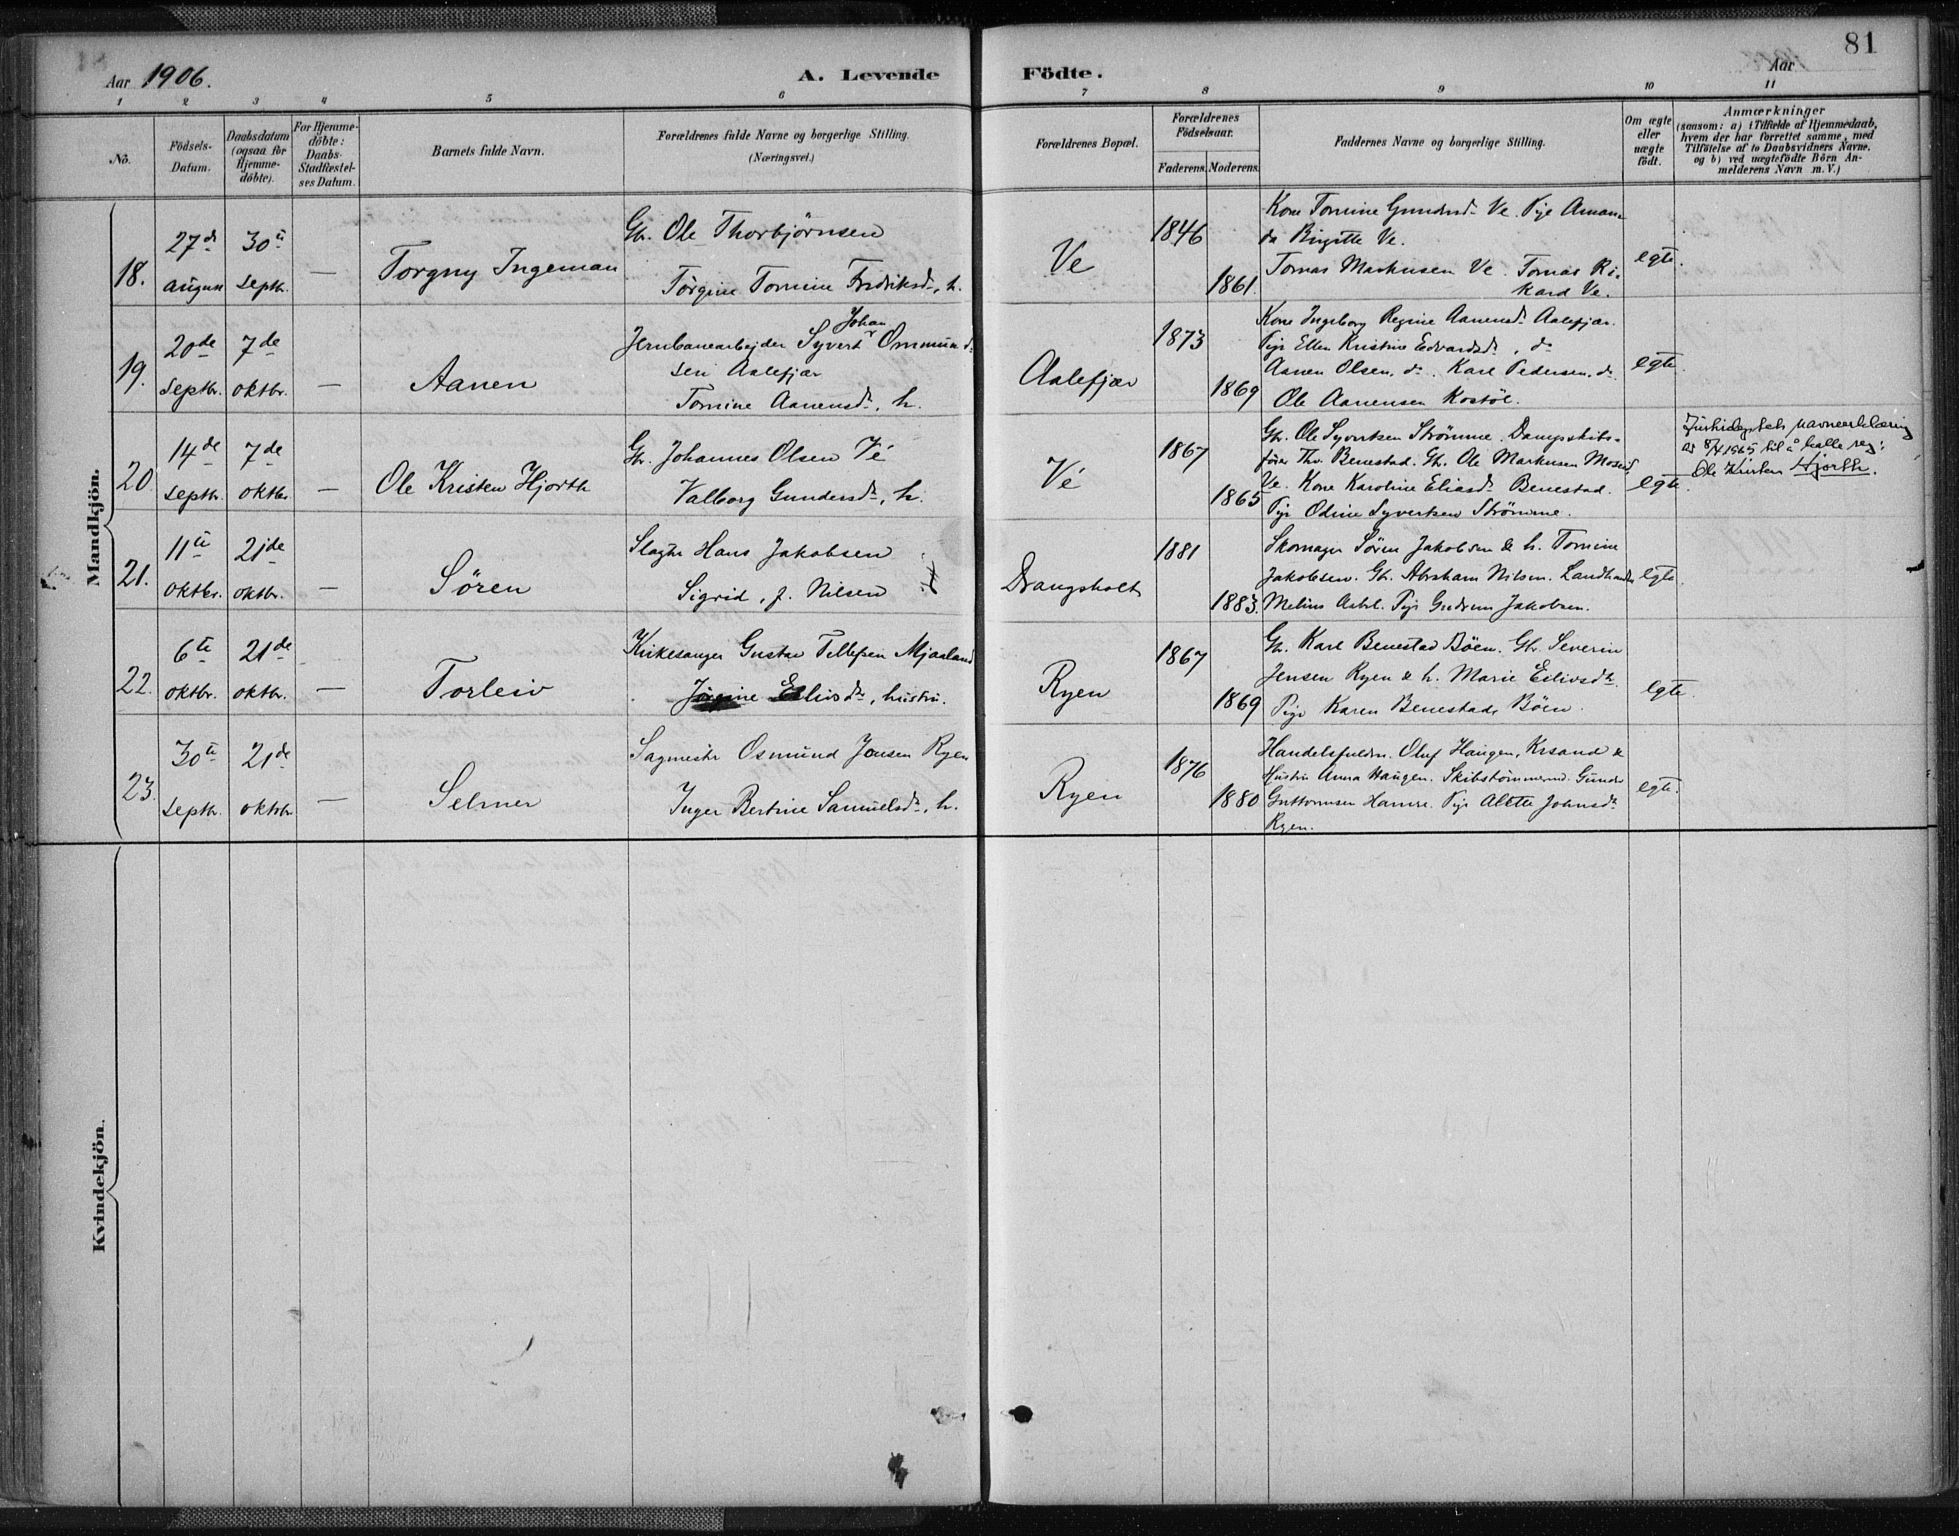 81
Aar 1906.
A. Levende Födte.
Aar
1 2 3 4 5 6 7 8 9 10 11
No.
Födsels-
Datum.
Daabsdatum
(ogsaa för
Hjemme-
döbte).
For Hjemme-
döbte:
Daabs-
Stadfæstel-
ses Datum.
Barnets fulde Navn.
Forældrenes fulde Navne og borgerlige Stilling.
(Næringsvei.)
Forældrenes Bopæl.
Forældrenes
Födselsaar.
Faderens. Moderens.
Faddernes Navne og borgerlige Stilling.
Om ægte
eller
uægte
födt.
Anmærkninger
(saasom: a) i Tilfælde af Hjemmedaab,
hvem der har forrettet samme, med
Tilföielse af to Daabsvidners Navne.
og b) ved uægtefödte Börn An-
melderens Navn m. V.)
Mandkjön.
18.
27de
august
30te
septbr.
—
Torgny Ingeman
Gbr. Ole Thorbjörnsen
Törgine Tomine Fredriksdr, h.
Ve
1846
1861.
Kone Tomine Gundersdr Ve. Pige Aman-
da Birgitte Ve.
Tomas Markusen Ve. Tomas Ri-
kard Ve.
egte.
19.
20de
septbr.
7de
oktbr.
—
Aanen
Johan
Jernbanearbejder Syvert Ommund-
sen Aalefjær
Tomine Aanensdr, h.
Aalefjær
1873
1869
Kone Ingeborg Regine Aanensdr Aalefjær.
Pige Ellen Kristine Edvardsdr, do
Aanen Olsen, do. Karl Pedersen, do
Ole Aanensen Kostöl.
egte.
20.
14de
septbr.
7de
oktbr.
—
Ole Kristen Hjorth
Gbr. Johannes Olsen Vé
Valborg Gundersdr, h.
Vé
1867
1865
Gbr. Ole Syvertsen Strömme. Dampskibs-
förer Thv. Benestad. Gbr. Ole Markusen Moseid
Ve. Kone Karoline Eliasdr Benestad.
Pige Odine Syvertsen Strömme.
egte.
Justisdeptets navneerklæring
av 8/4 1965 til å kalle seg:
Ole Kristen Hjorth.
21.
11te
oktbr.
21de
oktbr.
—
Sören
Slagter Hans Jakobsen
Sigrid, f. Nilsen
Drangsholt
1881
1883.
Skomager Sören Jakobsen & h. Tomine
Jakobsen. Gbr. Abraham Nilsen. Landhandler
Melius Pige Gudrun Jakobsen.
egte.
22.
6te
oktbr.
21de
oktbr.
—
Torleiv
Kirkesanger Gustav Tellefsen Mjaaland
Jörgine Eilivsdr, hustru.
Ryen
1867
1869
Gbr. Karl Benestad Böen. Gbr. Severin
Jensen Ryen & h. Marie Eilivsdr.
Pige Karen Benestad, Böen.
egte.
23.
30te
septbr.
21de
oktobr
—
Selmer
Sagmester Osmund Jensen Ryen
Inger Bertine Samuelsdr, h.
Ryen
1876
1880
Handelsfuldm. Oluf Haugen, Krsand &
Hustru Anna Haugen. Skibstömmermd. Gunder
Guttormsen Hamre. Pige Alette Johnsdr
Ryen.
egte.
Kvindekjön.